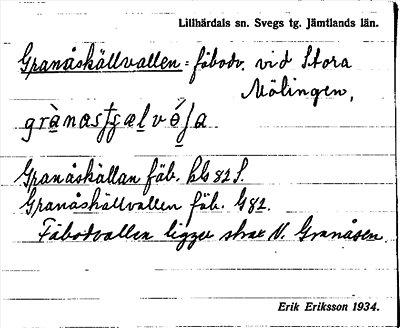 Lillhärdals sn. Svegs tg. Jämtlands län.
Granåskällvallen = fäbodv. vid Stora
Mölingen,
Granåskällan fäb. hls 82 S.
Granåskällvallen fäb. G 82.
Fäbodvallen ligger strax N. Granåsen.
Erik Eriksson 1934.